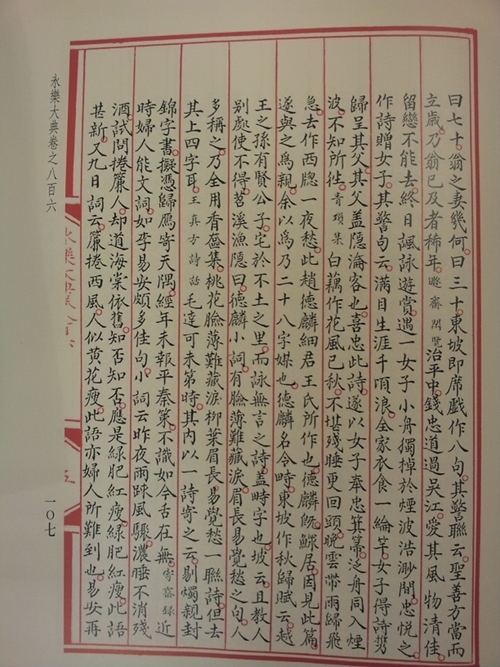 曰七十翁之妻幾何曰三十東坡即席戲作八句其警聯云聖善方當而
立歲乃翁已及者稀年 遯齋閑覽 治平中錢忠道過吳江愛其風物清佳
留戀不能去終日諷詠遊賞遇一女子小舟獨棹於煙波浩渺間忠悅之
作詩贈女子其警句云滿目生涯千頃浪全家衣食一綸竿女子得詩携
歸呈其父其父盖隱淪客也喜忠此詩遂以女子奉忠箕箒泛舟同入煙
波不知所徃 青瑣集 白藕作花風已秋不堪殘睡更回頭晚雲帶雨歸飛
急去作西牕一夜愁此趙德麟細君王氏所作也德麟旣鰥居因見此篇
遂與之為親余以為乃二十八字媒也德麟名令畤東坡作秋賦云越
王之孫有賢公子宅於不土之里而詠無言之詩盖畤字也坡云且教人
別處使不得苕溪漁隱曰德麟小詞有臉薄難藏淚眉長易覺愁之句人
多稱之乃全用香奩集桃花臉薄難藏淚柳葉眉長易覺愁一聯詩但去
其上四字耳 王直方詩話 毛達可未第時其内以一詩寄之云剔燭親封
錦字書擬憑歸鴈寄天隅經年未報平秦策不識如今舌在無 齋錄 近
時婦人能文詞如李易安頗多佳句小詞云昨夜雨踈風驟濃睡不消殘
酒試問捲簾人却道海棠依舊知否知否應是綠肥紅瘦綠肥紅瘦此語
甚新又九日詞云簾捲西風人似黃花瘦此語亦婦人所難到也易安再
永樂大典卷之八百六
一〇七